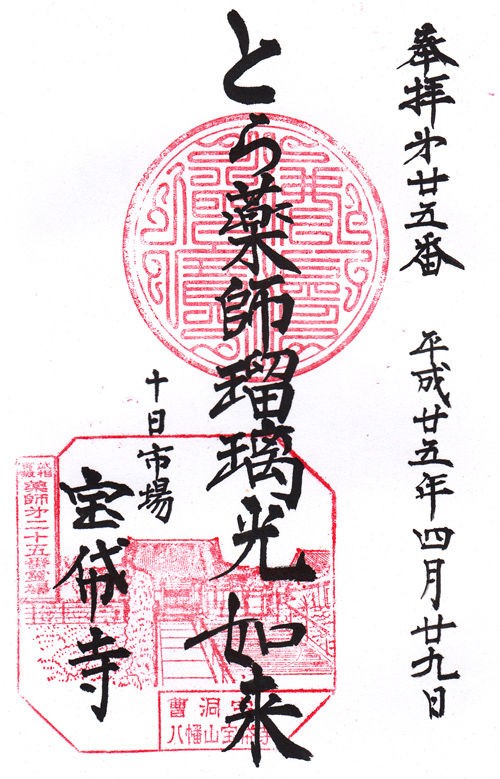 奉拝第廿五番 平成廿五年四月廿九日
とら薬師瑠璃光如来
十日市場
宝帒寺
武相寅歳薬師第二十五番霊場
曹洞宗
八幡山宝帒寺